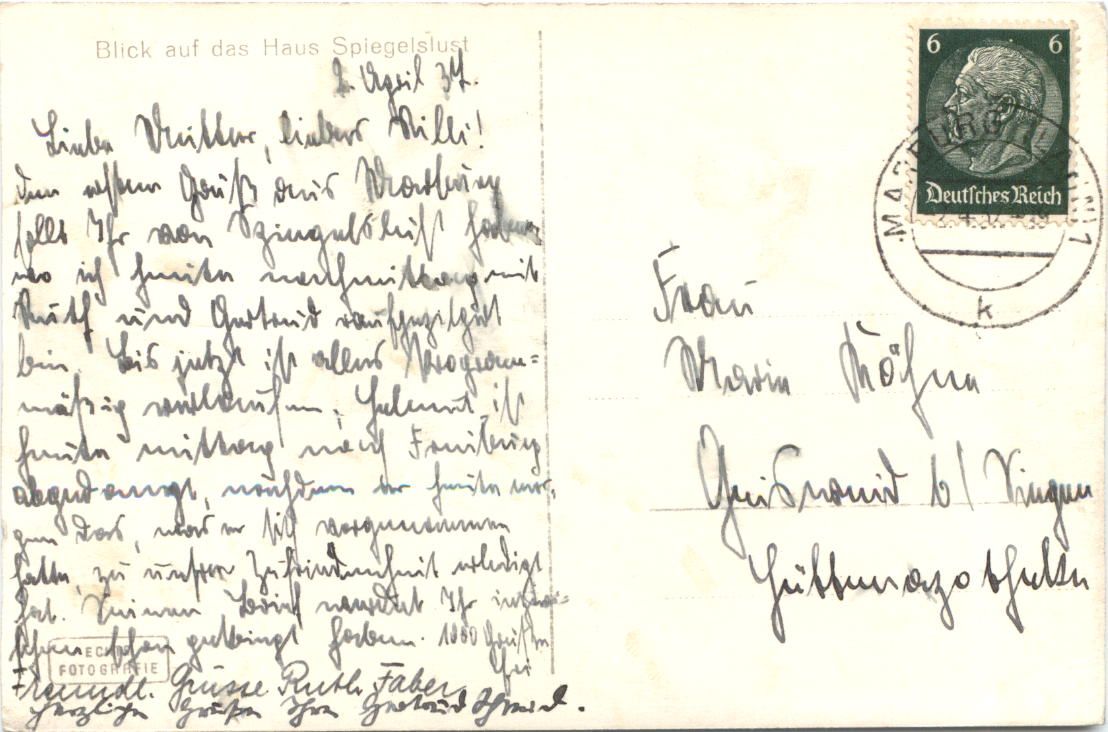 Blick auf das Haus Spiegelslust
2. April 37.
Liebe Mutter, liebes Willi!
Den ersten Gruß aus Marburg
sollt Ihr von Spiegelslust haben
wo ich heute nachmittag mit
Ruth und Gertrud
bin. Bis jetzt ist alles Program=
mäßig verlaufen. Helmut ist
heute mittag nach Freiburg
abgedampft, nachdem er heute mor-
gen das, was er sich vorgenommen
hatte, zu unsrer Zufriedenheit erledigt
hat. Seinen Brief werdet Ihr inzwi-
schen schon haben. 1000 Grüße
FOTOGRAFIE
Freundl. Grüsse Ruth Faber
Herzliche Grüße Ihre Gertrud
6 6
Deutsches Reich
MARBURG (LAHN) 1
k
Frau
Marie
Geisweid b/ Siegen
Hüttenapotheke